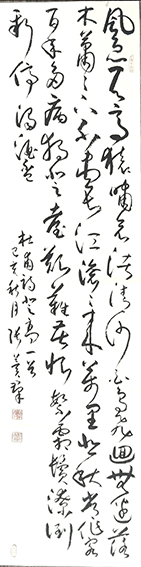 風急天高猿嘯哀渚清沙白鳥飛迴無邊落
木蕭〻下不盡長江滾〻來萬里悲秋常作客
百年多病獨登臺艱難苦恨繁霜鬢潦倒
新停濁酒杯
杜甫詩登高一首
己亥秋月張